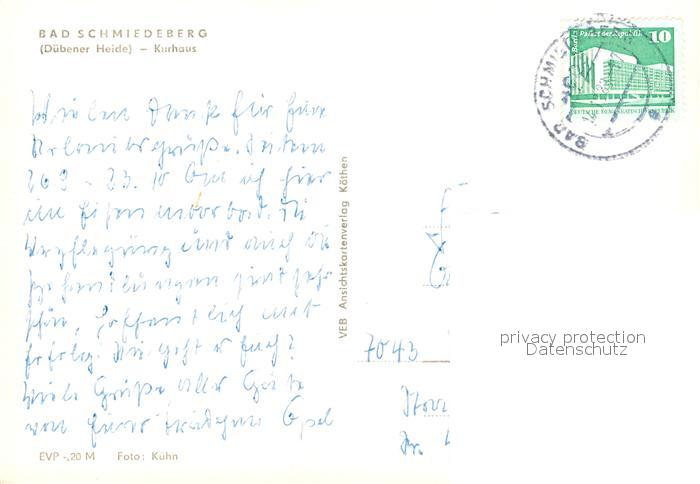 BAD SCHMIEDEBERG
(Dübener Heide) – Kurhaus
Berlin Palast der Republik 10
DEUTSCHE DEMOKRATISCHE REPUBLIK
BAD SCHMIEDEBERG
vielen Dank für Eure
Urlaubsgrüße. Seit dem
26.9 - 23.10 bin ich hier
im Eisenmoorbad. Die
Verpflegung und auch die
Behandlungen sind sehr
schön, hoffentlich mit
Erfolg. Wie geht es Euch?
Viele Grüße alles Gute
von Eurer
VEB Ansichtskartenverlag Köthen
7043
privacy protection
Datenschutz
EVP -,20 M Foto: Kühn